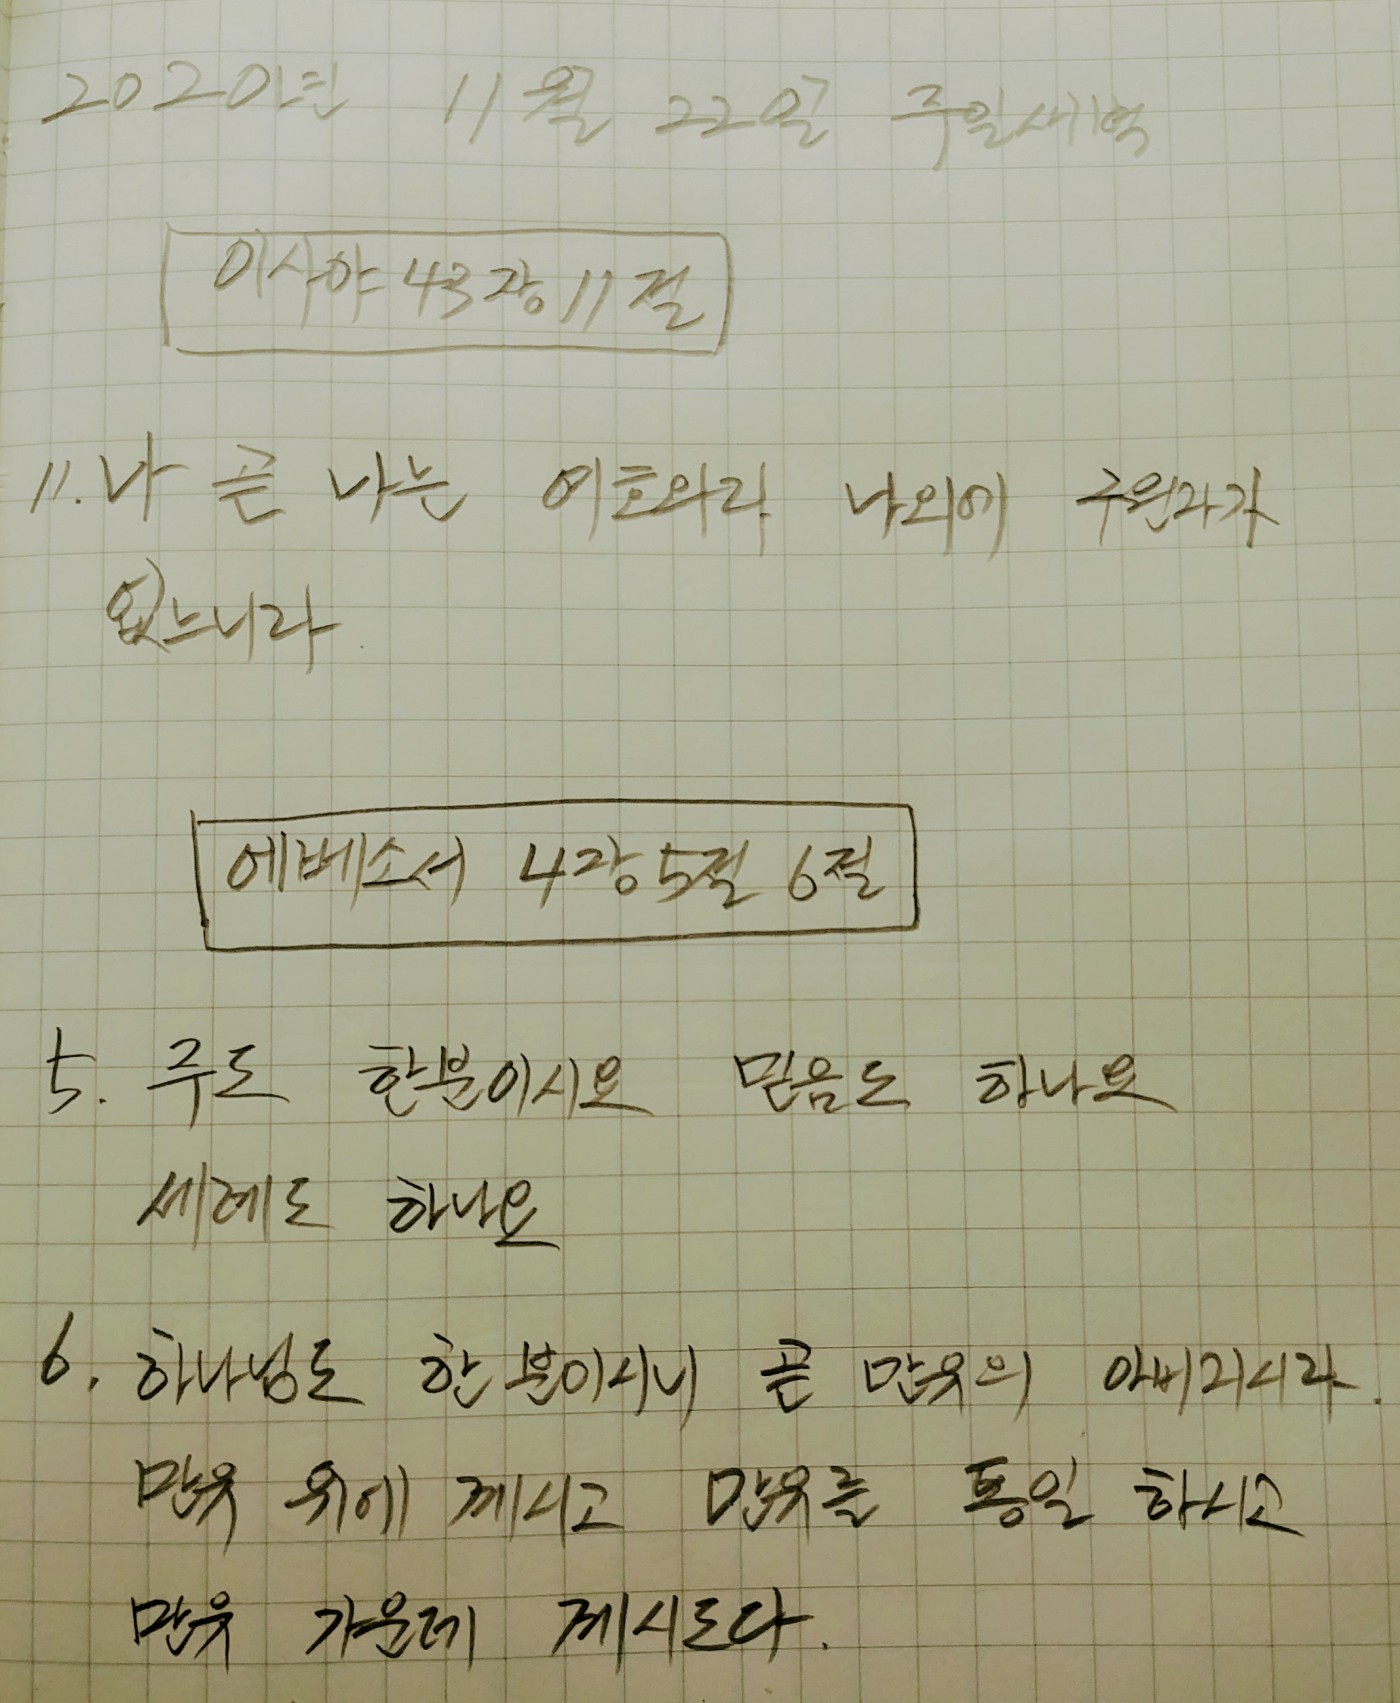 2020년 11월 22일 주일새벽
이사야 43장 11절
11. 나 곧 나는 여호와라 나외에 구원자가
없느니라
에베소서 4장 5절 6절
5. 주도 한분이시요 믿음도 하나요
세례도 하나요
6. 하나님도 한 분이시니 곧 만유의 아버지시라.
만유 위에 계시고 만유를 통일 하시고
만유 가운데 계시도다.